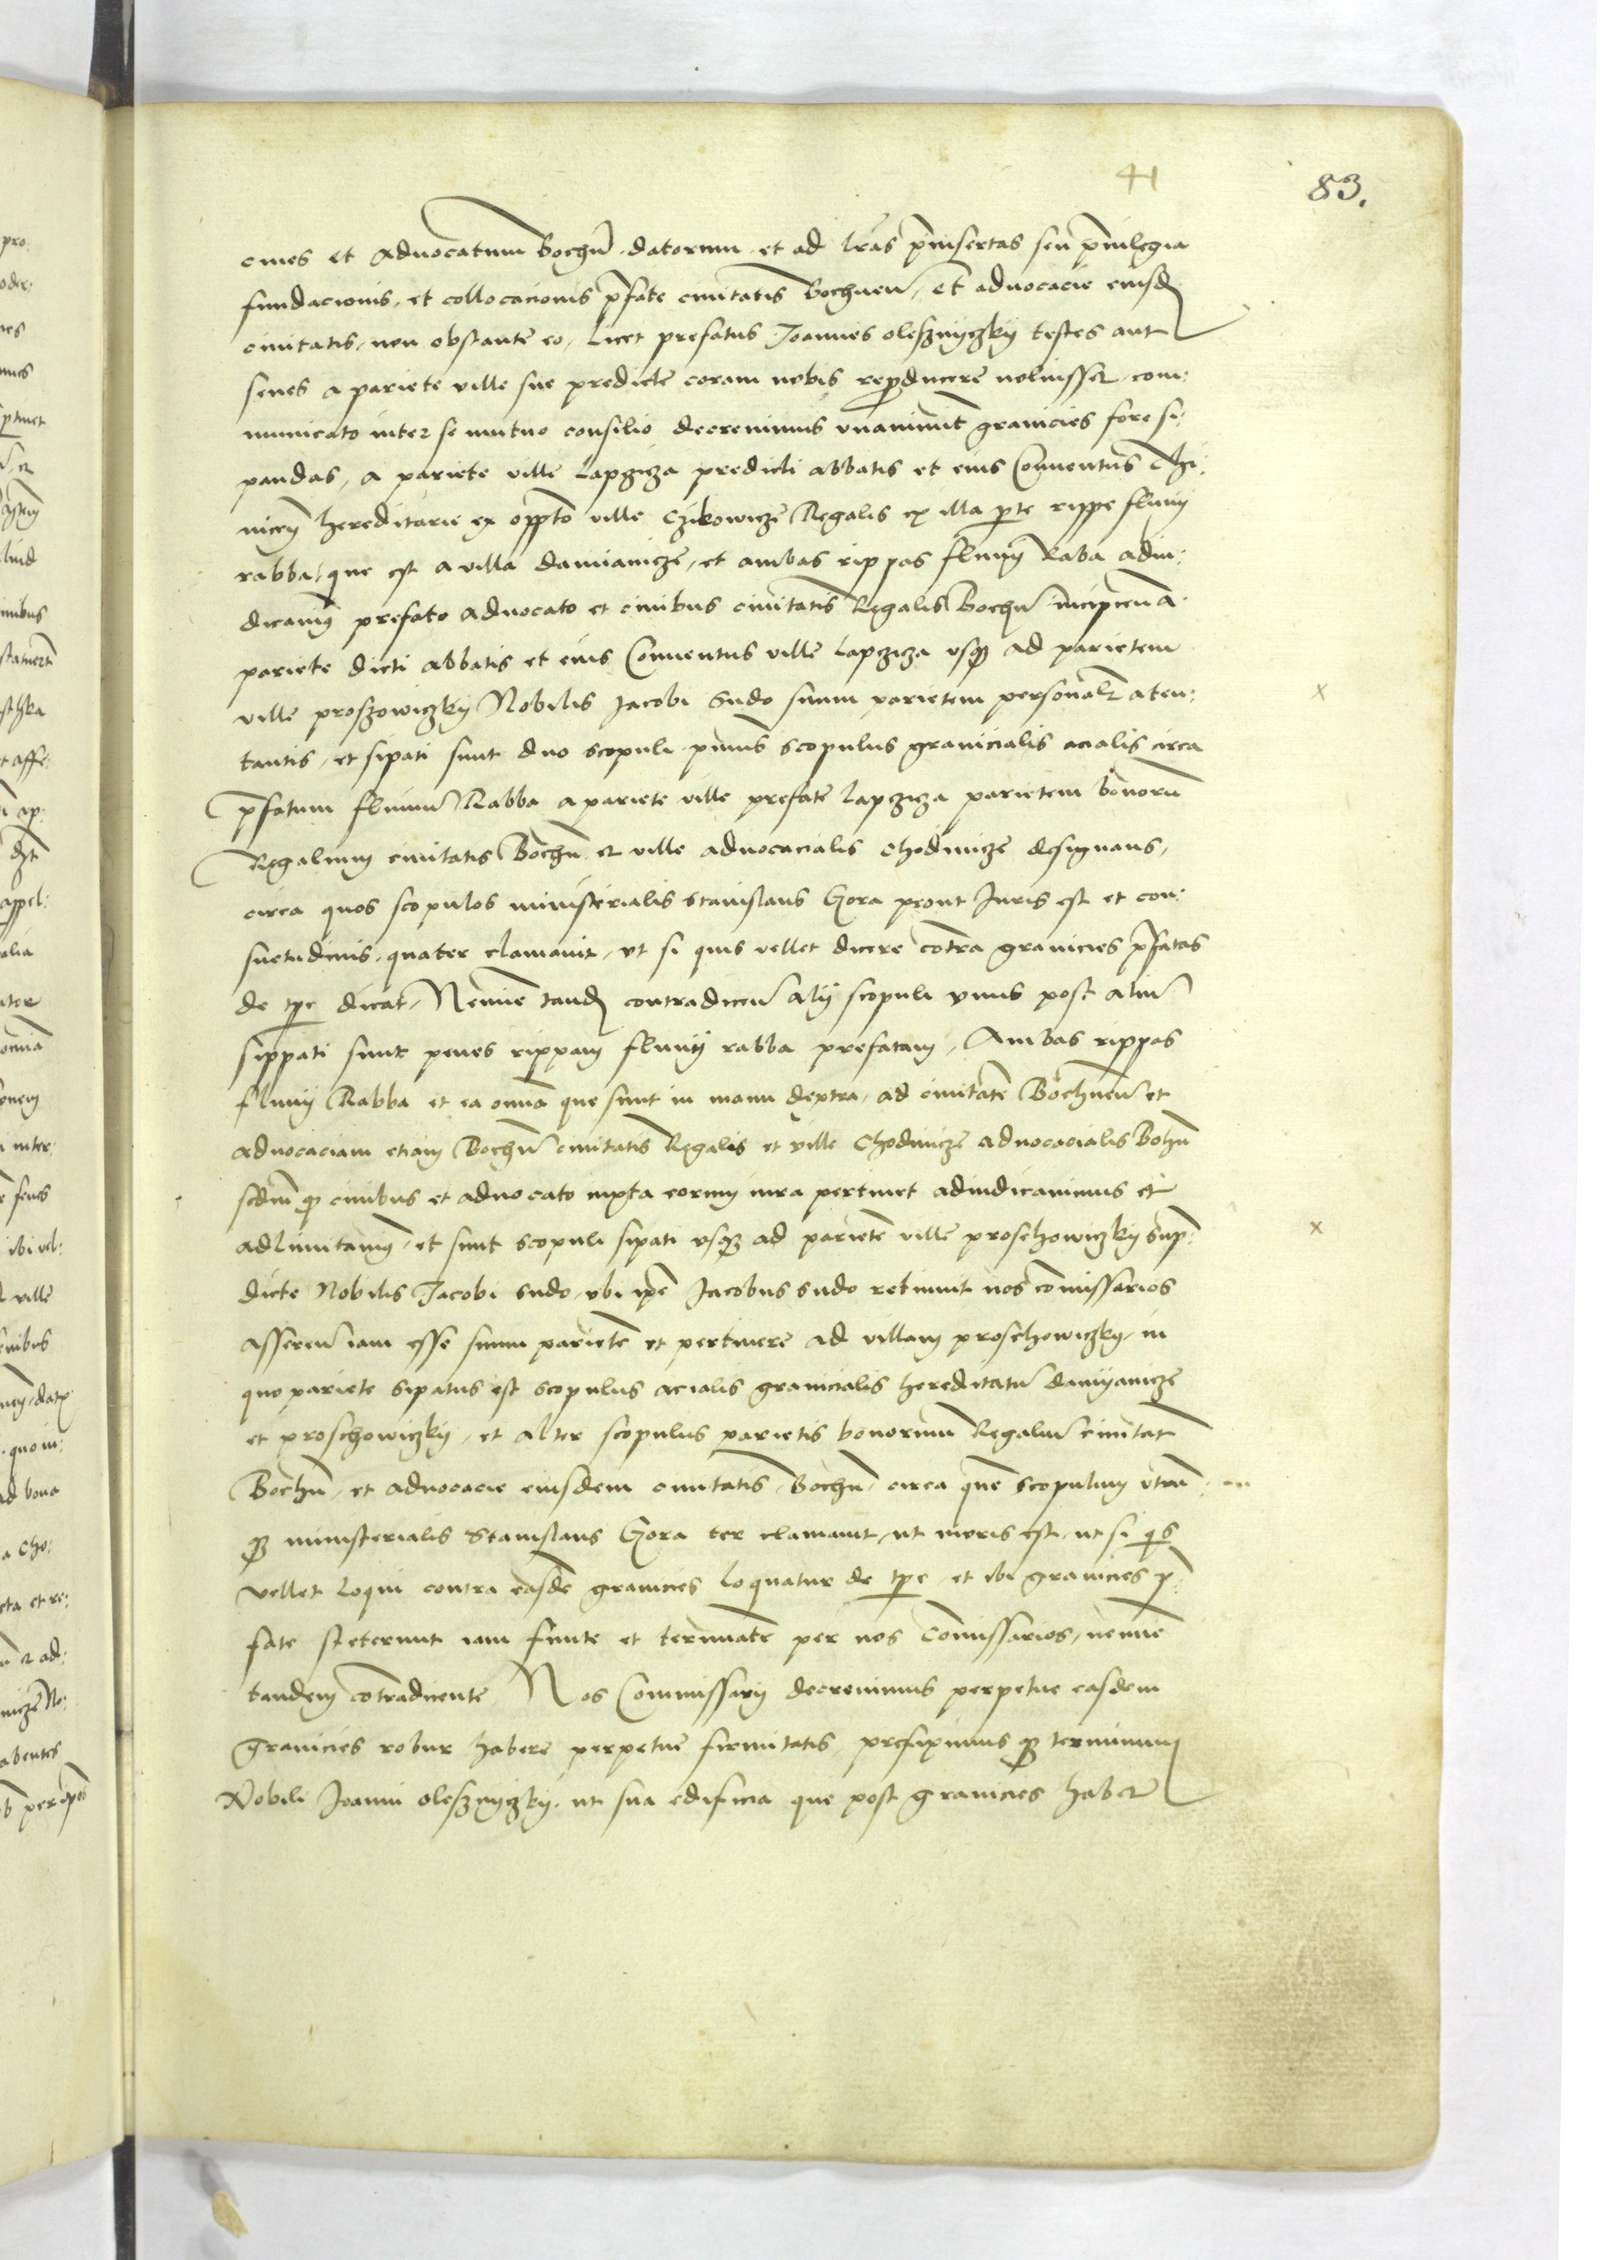 41
83.
ciues et aduocatum Bochn̄ datorum et ad lr̄as p̄insertas seu p̄uilegia
fundacionis, et collocacionis p̄fate ciuitatis Bochnen̄, et aduocacie eiusd
ciuitatis, non obstante eo, licet prefatus Joannes olesznyczkÿ testes aut
senes a pariete ville sue predicte coram nobis reproducere noluisset, com:
municato inter se mutuo consilio decreuimus vnanimit̄ granicies fore si:
pandas, a pariete ville Lapczicza predicti abbatis et eius Conuentus Thi:
nicen̄ hereditarie ex opp̄to ville Czikowicze Regalis ex illa p̄te rippe fluuÿ
rabba, que est a villa damianicze, et ambas rippas fluuÿ Raba adiu:
dicamus prefato aduocato et ciuibus ciuitatis Regalis Bochn̄ incipien̄ a
pariete dicti abbatis et eius Conuentus ville Lapczicza vsq̄ ad parietem
ville proszowiczkÿ Nobilis Jacobi Sudo suum parietem personalr̄ aten:
tantis, et sipati sunt duo scopuli primus scopulus granicialis acialis circa
p̄fatum fluuiū Rabba a pariete ville prefate lapczicza parietem bonorū
Regalium ciuitatis Bochn̄ et ville aduocacialis chodenicze designans,
circa quos scopulos ministerialis Stanislaus Gora prout Juris est et con:
suetudinis, quater clamauit, vt si quis vellet dicere contra granicies p̄fatas
de tp̄e dicat, Nemine tand contradicen̄ alÿ scopuli vnus post aliū
sippati sunt penes rippam fluuÿ rabba prefatam, Ambas rippas
fluuÿ Rabba et ea omnia que sunt in manu dextra, ad ciuitatē Bochnen̄ et
aduocaciam etiam Bochn̄ ciuitatis Regalis et ville Chodenicze aduocacialis Bohn̄
scdm̄ q̄ ciuibus et aduocato iuxta eorum iura pertinet adiudicauimus et
adlimitamus, et sunt scopuli sipati vsq̄ ad parietē ville proschowiczkÿ sup̄:
dicte Nobilis Jacobi Sudo, vbi ip̄e Jacobus Sudo retinuit nos comissarios
asseren̄ iam esse suum parietē et pertinere ad villam proschowiczkÿ, in
quo pariete sipatus est scopulus acialis granicialis hereditatū damÿanicze
et proschowiczkÿ, et alter scopulus parietis bonorum Regaliū ciuitat
Bochn̄, et aduocacie eiusdem ciuitatis Bochn̄ circa quē scopulum vtrū
q̄ ministerialis Stanislaus Gora ter clamauit, ut moris est, ut si q̄s
vellet loqui contra easdē granicies loquatur de tp̄e et ibi granicies p̄:
fate steterunt iam finite et terminate per nos Comissarios, nemine
tandem cōtradicente Nos Commissarÿ decreuimus perpetue easdem
Granicies robur habere perpetue firmitatis, prefiximus q̄ terminum
Nobili Joanni olesznyczkÿ, ut sua edificia que post granicies habet